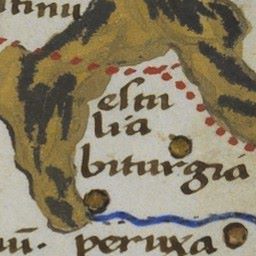 tinu
estu
lia
biturgia
peruxa